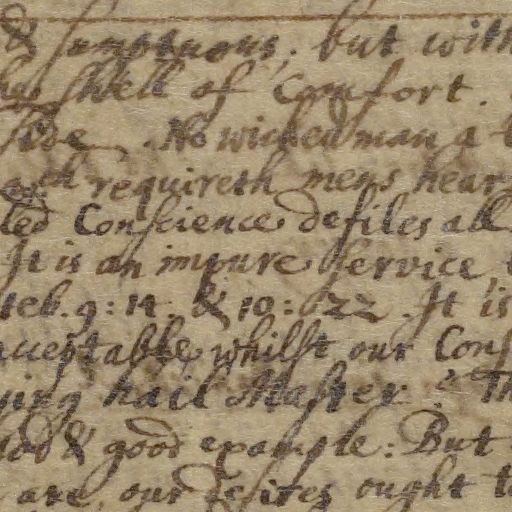 & sumptuous; but with
shell of Comfort.
side. No wicked man a
requireth mens hear
led Conscience defiles all
It is an impure service
Heb. 9: 14. & 10: 22. It is
acceptable, whilst our Cons
ying hail Master. Th
God & good example: But
are, our desires ought to